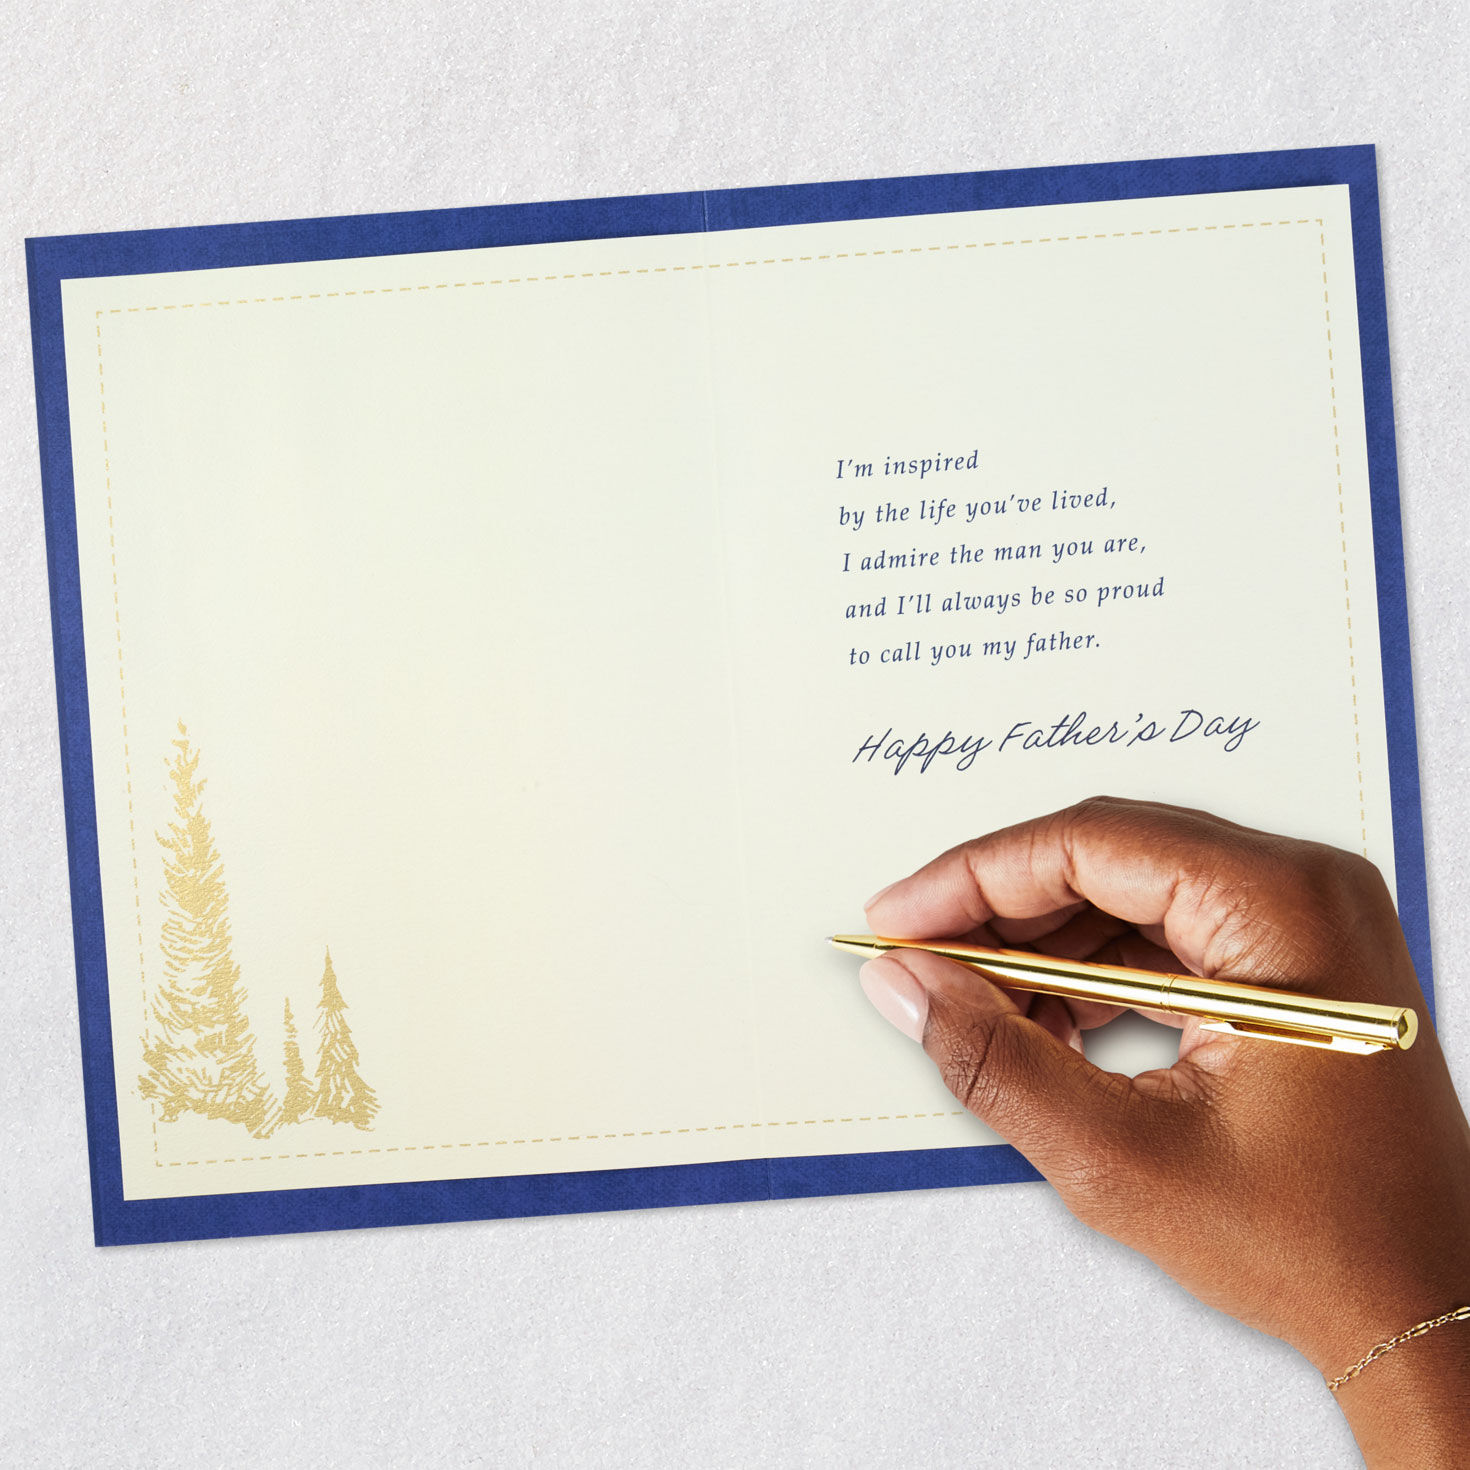 I’m inspired
by the life you’ve lived,
I admire the man you are,
and I’ll always be so proud
to call you my father.
Happy Father’s Day